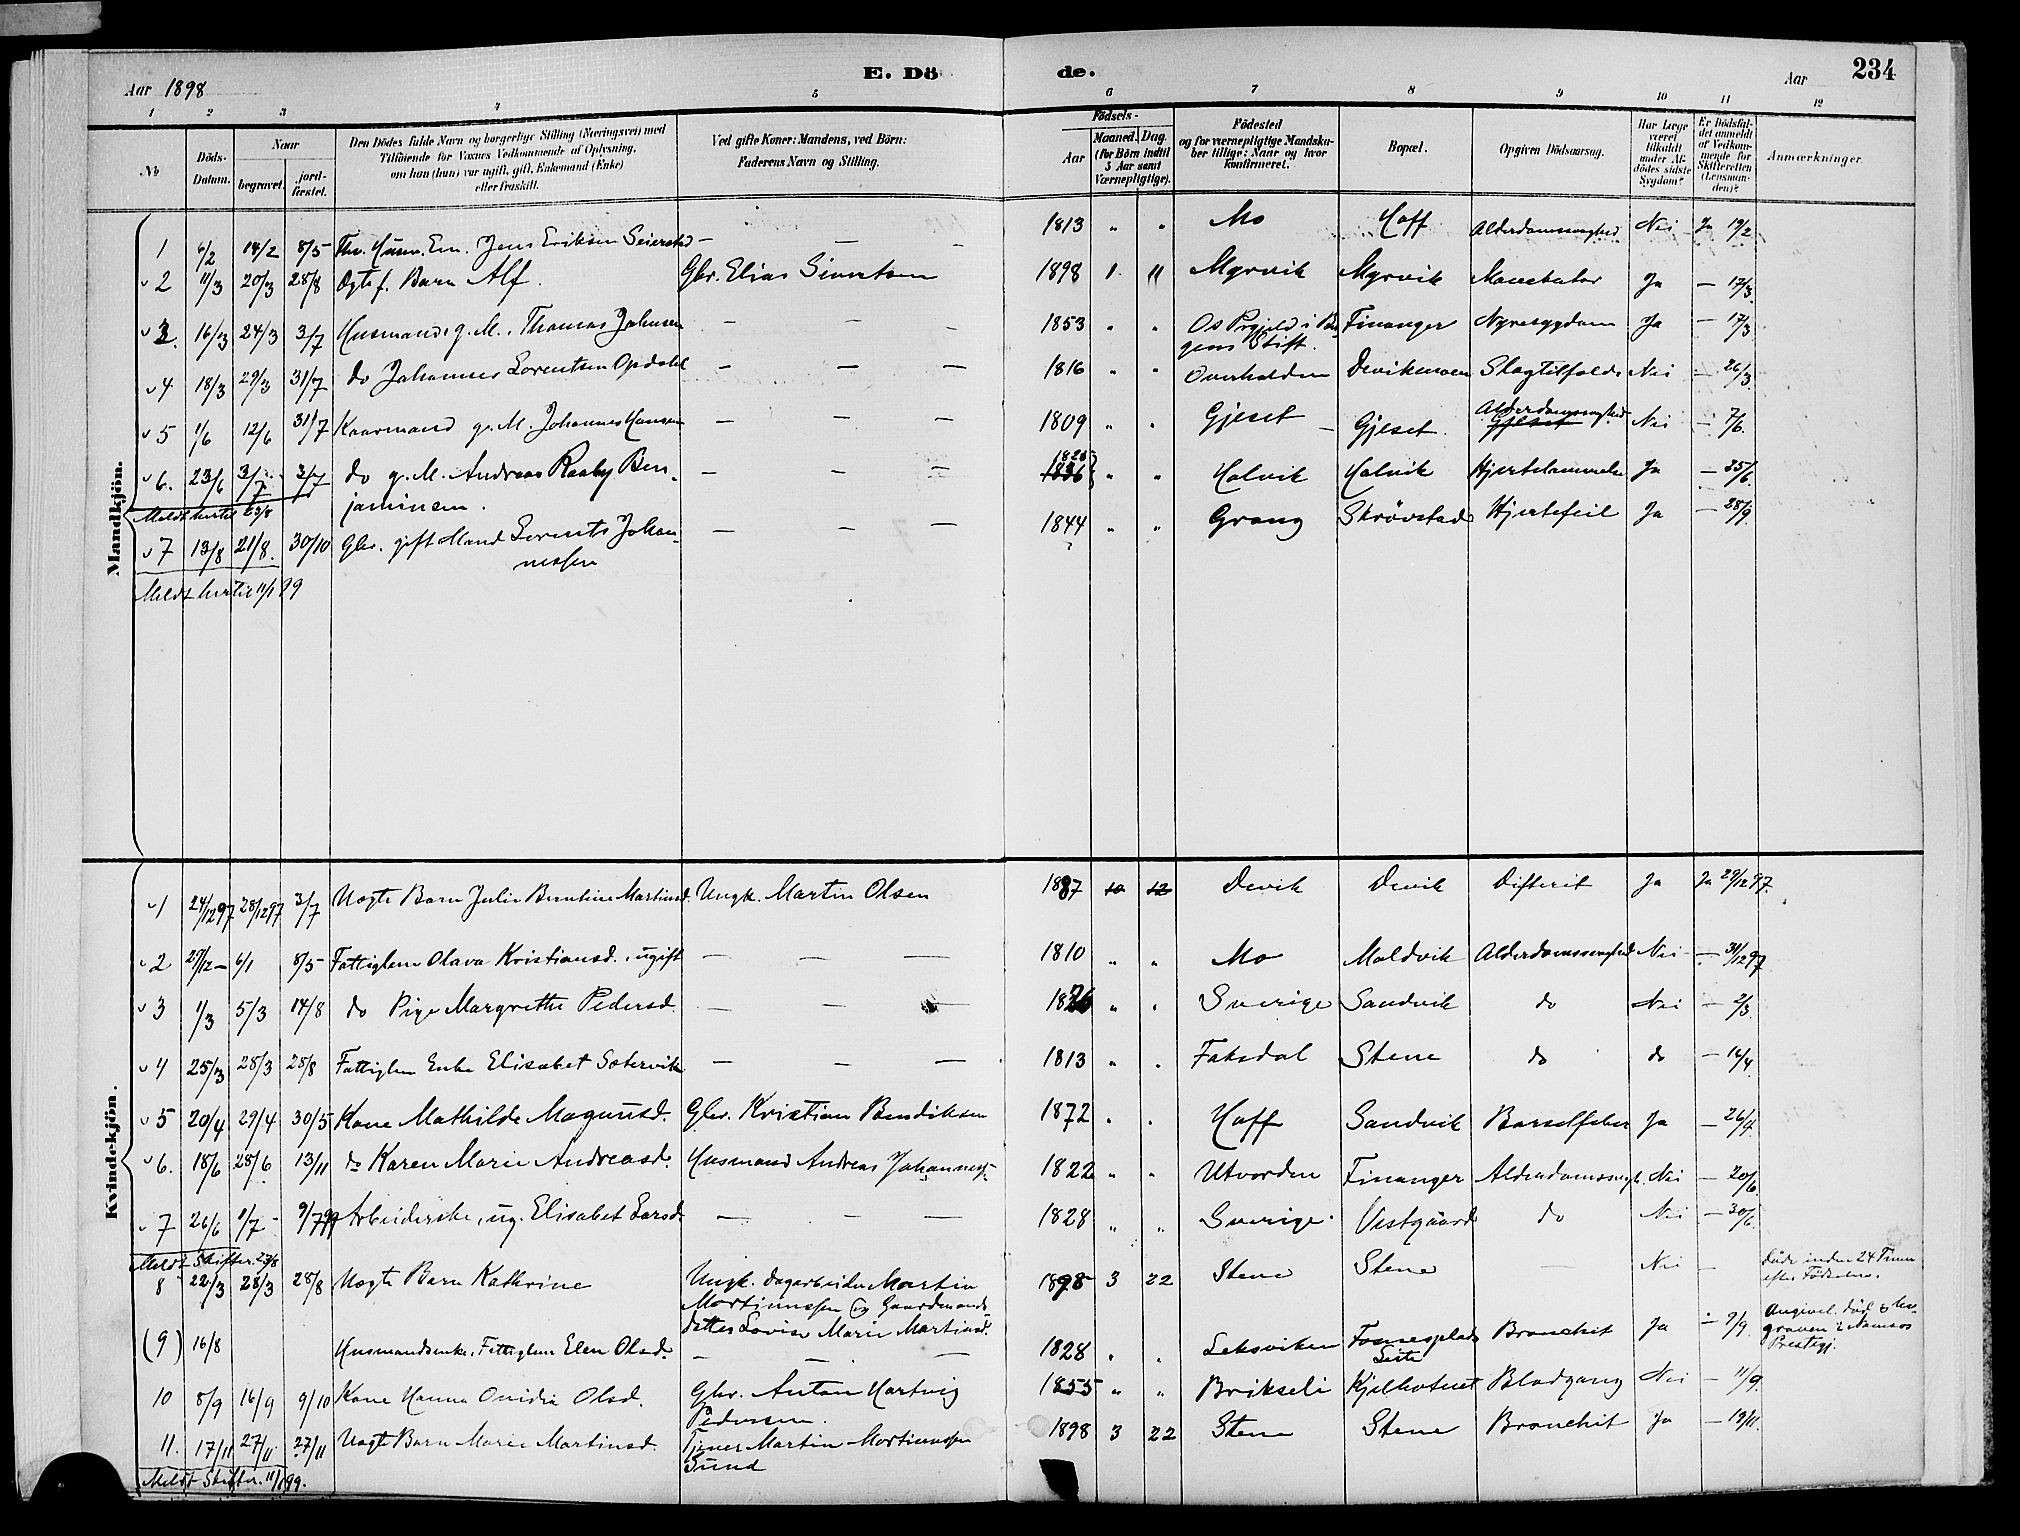 Aar 1898
E. Dö
de.
Aar
234
1 2 3 4 5 6 7 8 9 10 11 12
No
Döds-Datum.
Naar
begravet.
jord-fæstet.
Den Dödes fulde Navn og borgerlige Stilling (Næringsvei) med
Tilföiende for Voxnes Vedkommende af Oplysning,
om han (hun) var ugift, gift, Enkemand (Enke)
eller fraskilt.
Ved gifte Koner: Mandens, ved Börn:
Faderens Navn og Stilling.
Födsels-
Aar
Maaned. Dag.
(for Börn indtil
5 Aar samt
Værnepligtige).
Födested
og for værnepligtige Mandskaber tillige: Naar og hvor
konfirmeret.
Bopæl.
Opgiven Dödsaarsag.
Har Læge
været
tilkaldt
under Afdödes sidste
Sygdom?
Er Dödsfaldet anmeldt
af Vedkommende for
Skifteretten
(Lensmanden)?
Anmærkninger.
Mandkjön.
1 6/2 14/2 8/5 Jens Eriksen Seierstad — — - 1813 " " Mo Hoff Alderdomssvaghed Nei Ja 12/2
2 11/3 20/3 28/8 Ægtef. Barn Alf. Gbr. Elias Sivertsen 1898 1 11 Myrvik Myrvik Ja — 17/3
3. 16/3 24/3 3/7 Husmand g. M. Thomas Johnsen — — - 1853 " " Os Prgjeld i Ber-
gens Stift. Finanger Nyresygdom Ja — 17/3
4 18/3 29/3 31/7 do Johannes Lorentsen Opdahl — — — 1816 " " Overhalden Devikmoen Slagtilfælde Nei — 26/3
5 1/6 12/6 31/7 Kaarmand g. M. Johannes Hansen — — — 1809 " " Gjeset Gjeset Alderdomssvaghed Gjeset Nei — 7/6.
6. 23/6 3/7 3/7 do g. M. Andreas Raaby Ben-
jaminsen. — — = 1826 " " Holvik Holvik Hjertelammelse Ja — 25/6.
Meldt hertil 23/8
7 13/8 21/8. 30/10 Gbr. gift Mand Lorents Johan-
nessen — — — 1844 " " Grong Skrövstad Hjertefeil Ja — 28/9.
Meldt hertil 11/1 99
Kvindekjön.
1 24/12 97 28/12 97 3/7 Uægte Barn Julie Berntine Martinsd. Ungk. Martin Olsen 1887 10 12 Devik Devik Difterit Ja Ja 29/12 97.
2 27/12 — 6/1 8/5 Fattiglem Olava Kristiansd., ugift — — — 1810 " " Mo Moldvik Alderdomssvaghed Nei — 31/12 97
3 1/3 5/3 14/8 do Pige Margrethe Pedersd. — — — 1826 " " Sverige Sandvik do Nei — 2/3.
4 25/3 28/3 28/8 Fattiglem Enke Elisabet Sætervik — — — 1813 " " Faksdal Stene do do — 14/4
5 20/4 29/4 30/5 Kone Mathilde Magnusd. Gbr. Kristian Bendiksen 1872 " " Hoff Sandvik Barselfeber Ja — 26/4.
6. 18/6 28/6 13/11 do Karen Marie Andreasd. Husmand Andreas Johannes. 1822 " " Utvorden Finanger Alderdomssvagh. Nei — 20/6.
7 26/6 1/7 - 9/7 99 Arbeiderske, ug. Elisabet Larsd. — — — 1828 " " Sverige. Vestgaard do Nei — 30/6.
Meldt Skifter. 23/8
8 22/3 28/3 28/8 Uægte Barn Kathrine Ungk. dagarbeider Martin
Martinussen og Gaardmands-
datter Lovise Marie Martinsd. 1898 3 22 Stene Stene — Nei — Döde inden 24 Timer
efter Födselen.
(9) 16/8 Husmandsenke, Fattiglem Elen Olsd. — — — 1828 " " Leksviken Fosnesplads Bronchit Ja — 9/9. Angivel. död & be-
graven i Namsos
Prestegj.
10 8/9 16/9 9/10 Kone Hanna Ovidia Olsd. Gbr. Anton Hartvig
Pedersen. 1855 " " Brikseli Blodgang Nei — 11/9.
11. 17/11 27/11 27/11 Uægte Barn Marie Martinsd. Tjener Martin Martinussen
Sund 1898 3 22 Stene Stene Bronchit Ja — 19/11.
Meldt Skifter. 11/1 99.